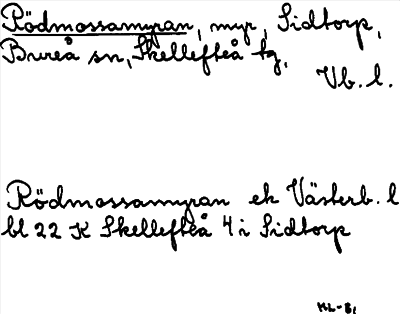 Rödmossamyran, myr, Sidtorp,
Bureå sn, Skellefteå tg.
Vb. l.
Rödmossamyran ek Västerb. l
bl 22 K Skellefteå 4 i Sidtorp